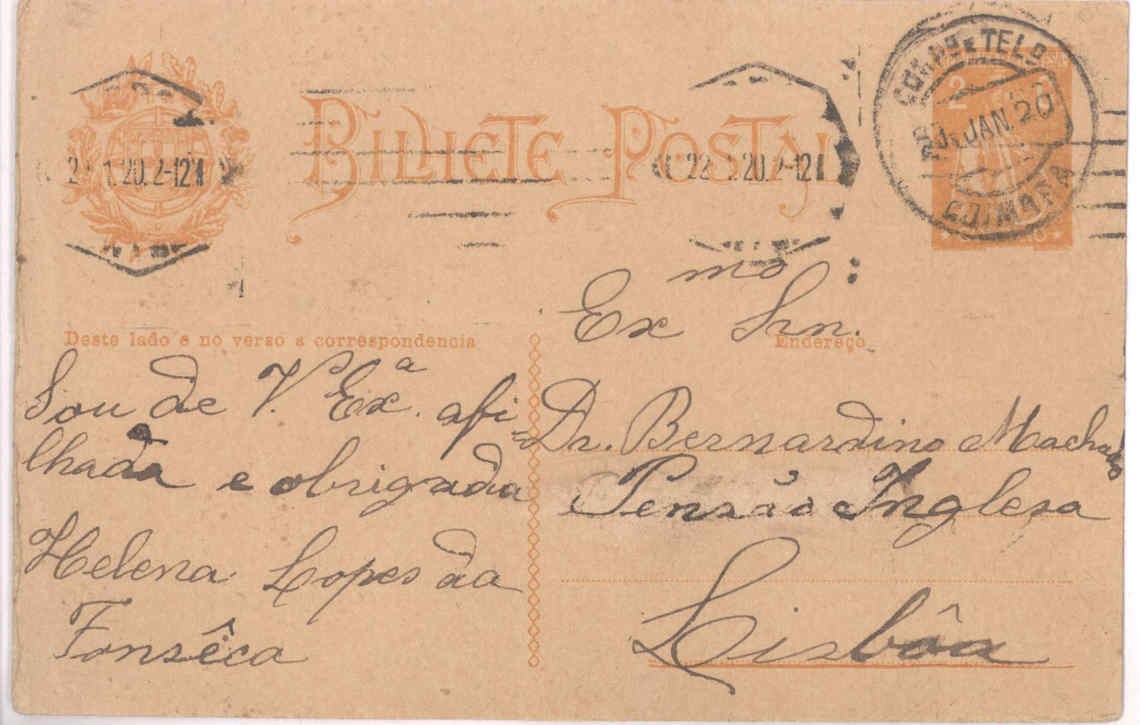 BILHETE POSTAL
2
CORRº E TELº
JAN. 20
COIMBRA
1.20. 2-12
22 1.20. 2-12
Deste lado e no verso a correspondencia
Endereço
Sou de V.ª Ex.ª afi
lhada e obrigada
Helena Lopes da
Fonsêca
Exmo Snr.
Dr. Bernardino Machado
Pensão Inglesa
Lisbôa